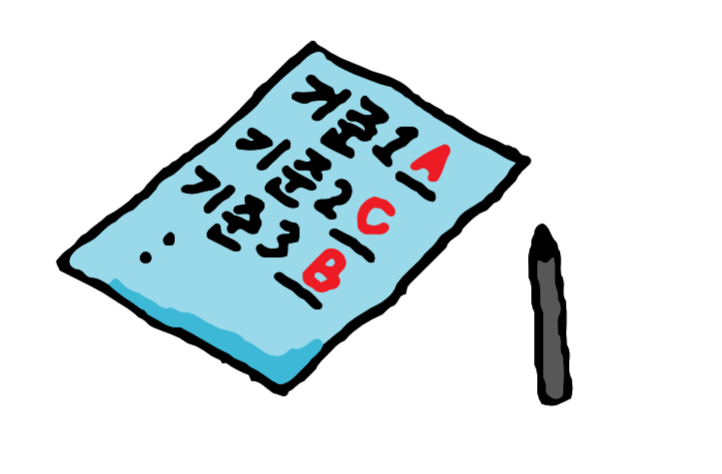 기준1 A
기준2 C
기준3 B